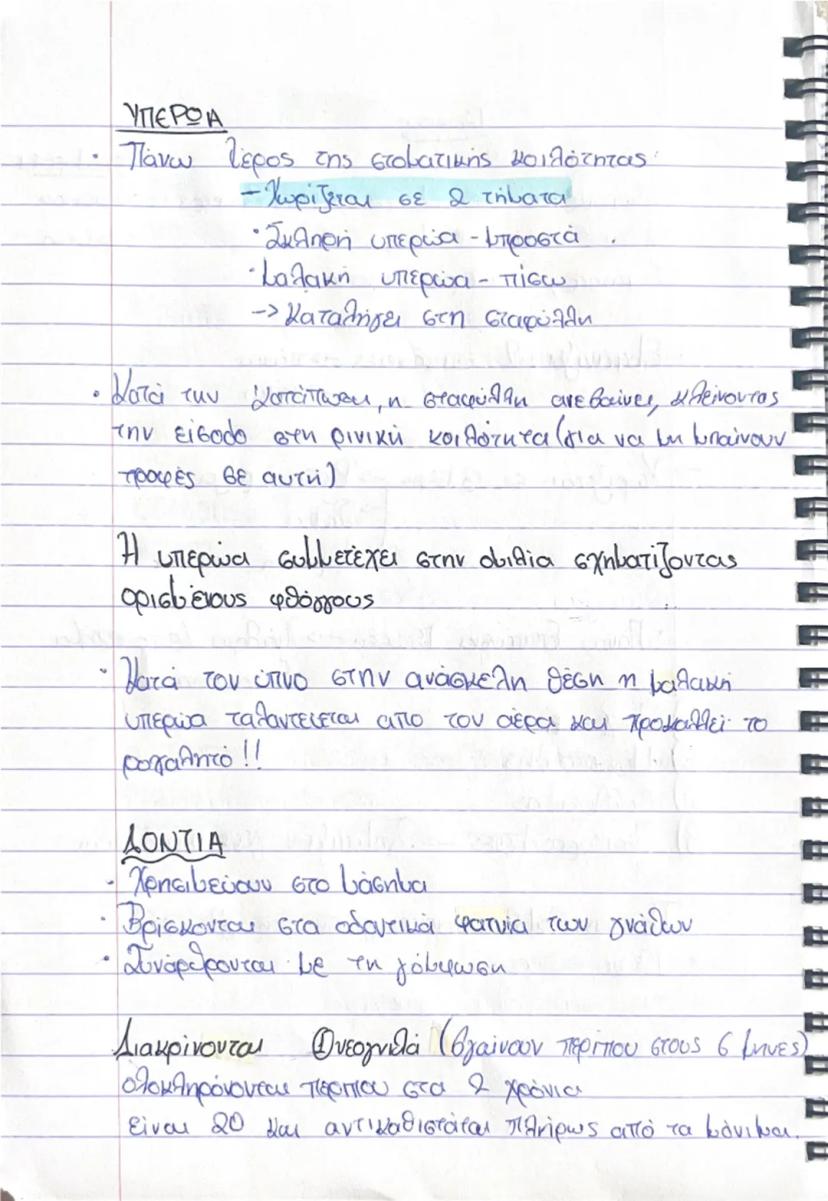 ΥΠΕΡΩΑ
· Πάνω μέρος της στοματικής κοιλότητας:
- Χωρίζεται σε 2 τμήματα
· Σκληρή υπερώα - μπροστά
· μαλακή υπερώα - πίσω
-> Καταλήγει στη σταφύλη
· Κατά την κατάποση, η σταφύλη ανεβαίνει, κλείνοντας
την είσοδο στη ρινική κοιλότητα (για να μη μπαίνουν
τροφές σε αυτή)
Η υπερώα συμμετέχει στην ομιλία σχηματίζοντας
ορισμένους φθόγγους
· Κατά τον ύπνο στην ανάσκελη θέση η μαλακή
υπερώα ταλαντεύεται απο τον αέρα και προκαλεί το
ροχαλητό!!
ΔΟΝΤΙΑ
· Χρησιμεύουν στο μάσημα
· Βρίσκονται στα οδοντικά φατνία των γνάθων
· Συνάρθρουνται με τη γόμφωση
Διακρίνονται ① νεογιλά (βγαίνουν περίπου στους 6 μηνες)
ολοκληρώνονται περίπου στα 2 χρόνια
είναι 20 και αντικαθιστάται πλήρως από τα μόνιμα.